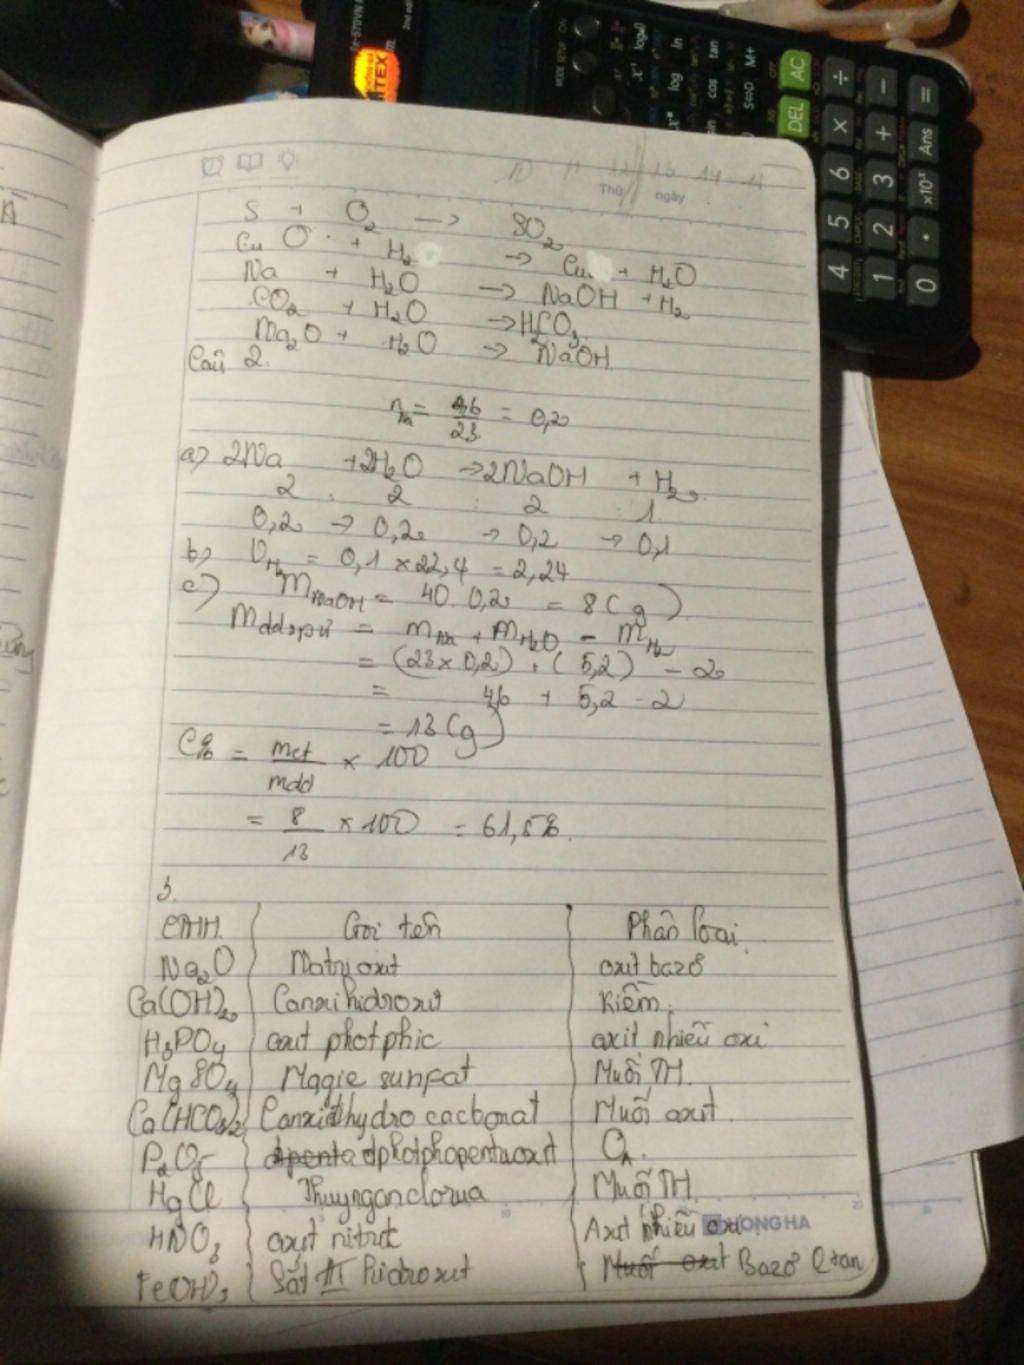 MODE SETUP ON
DEL AC
4 5 6 × ÷
1 2 3 + −
0 . ×10ˣ Ans =
log ln
cos tan
S⇔D M+
Thứ ngày
S + O₂ → SO₂
CuO + H₂ → Cu + H₂O
Na + H₂O → NaOH + H₂
CO₂ + H₂O → H₂CO₃
Na₂O + H₂O → NaOH
Câu 2.
n_Na = 4,6/23 = 0,2
a) 2Na + 2H₂O → 2NaOH + H₂
2 : 2 : 2 : 1
0,2 → 0,2 → 0,2 → 0,1
b) V_H₂ = 0,1 × 22,4 = 2,24
c) m_NaOH = 40 . 0,2 = 8 (g)
mddspứ = m_Na + m_H₂O − m_H₂
= (23 × 0,2) + (5,2) − 2
= 46 + 5,2 − 2
= 13 (g)
C% = mct/mdd × 100
= 8/13 × 100 = 61,5%.
3.
CTHH Gọi tên Phân loại
Na₂O Natri oxit oxit bazơ
Ca(OH)₂ Canxi hidroxit Kiềm
H₃PO₄ axit photphic axit nhiều oxi
MgSO₄ Magie sunfat Muối TH
Ca(HCO₃)₂ Canxi đihydro cacbonat Muối axit
P₂O₅ điphotphopentaoxit OA.
HgCl Thuỷngân clorua Muối TH
HNO₃ axit nitrit Axit nhiều oxi
HONG HA
Fe(OH)₃ Sắt III hidroxit Muối axit Bazơ Ktan